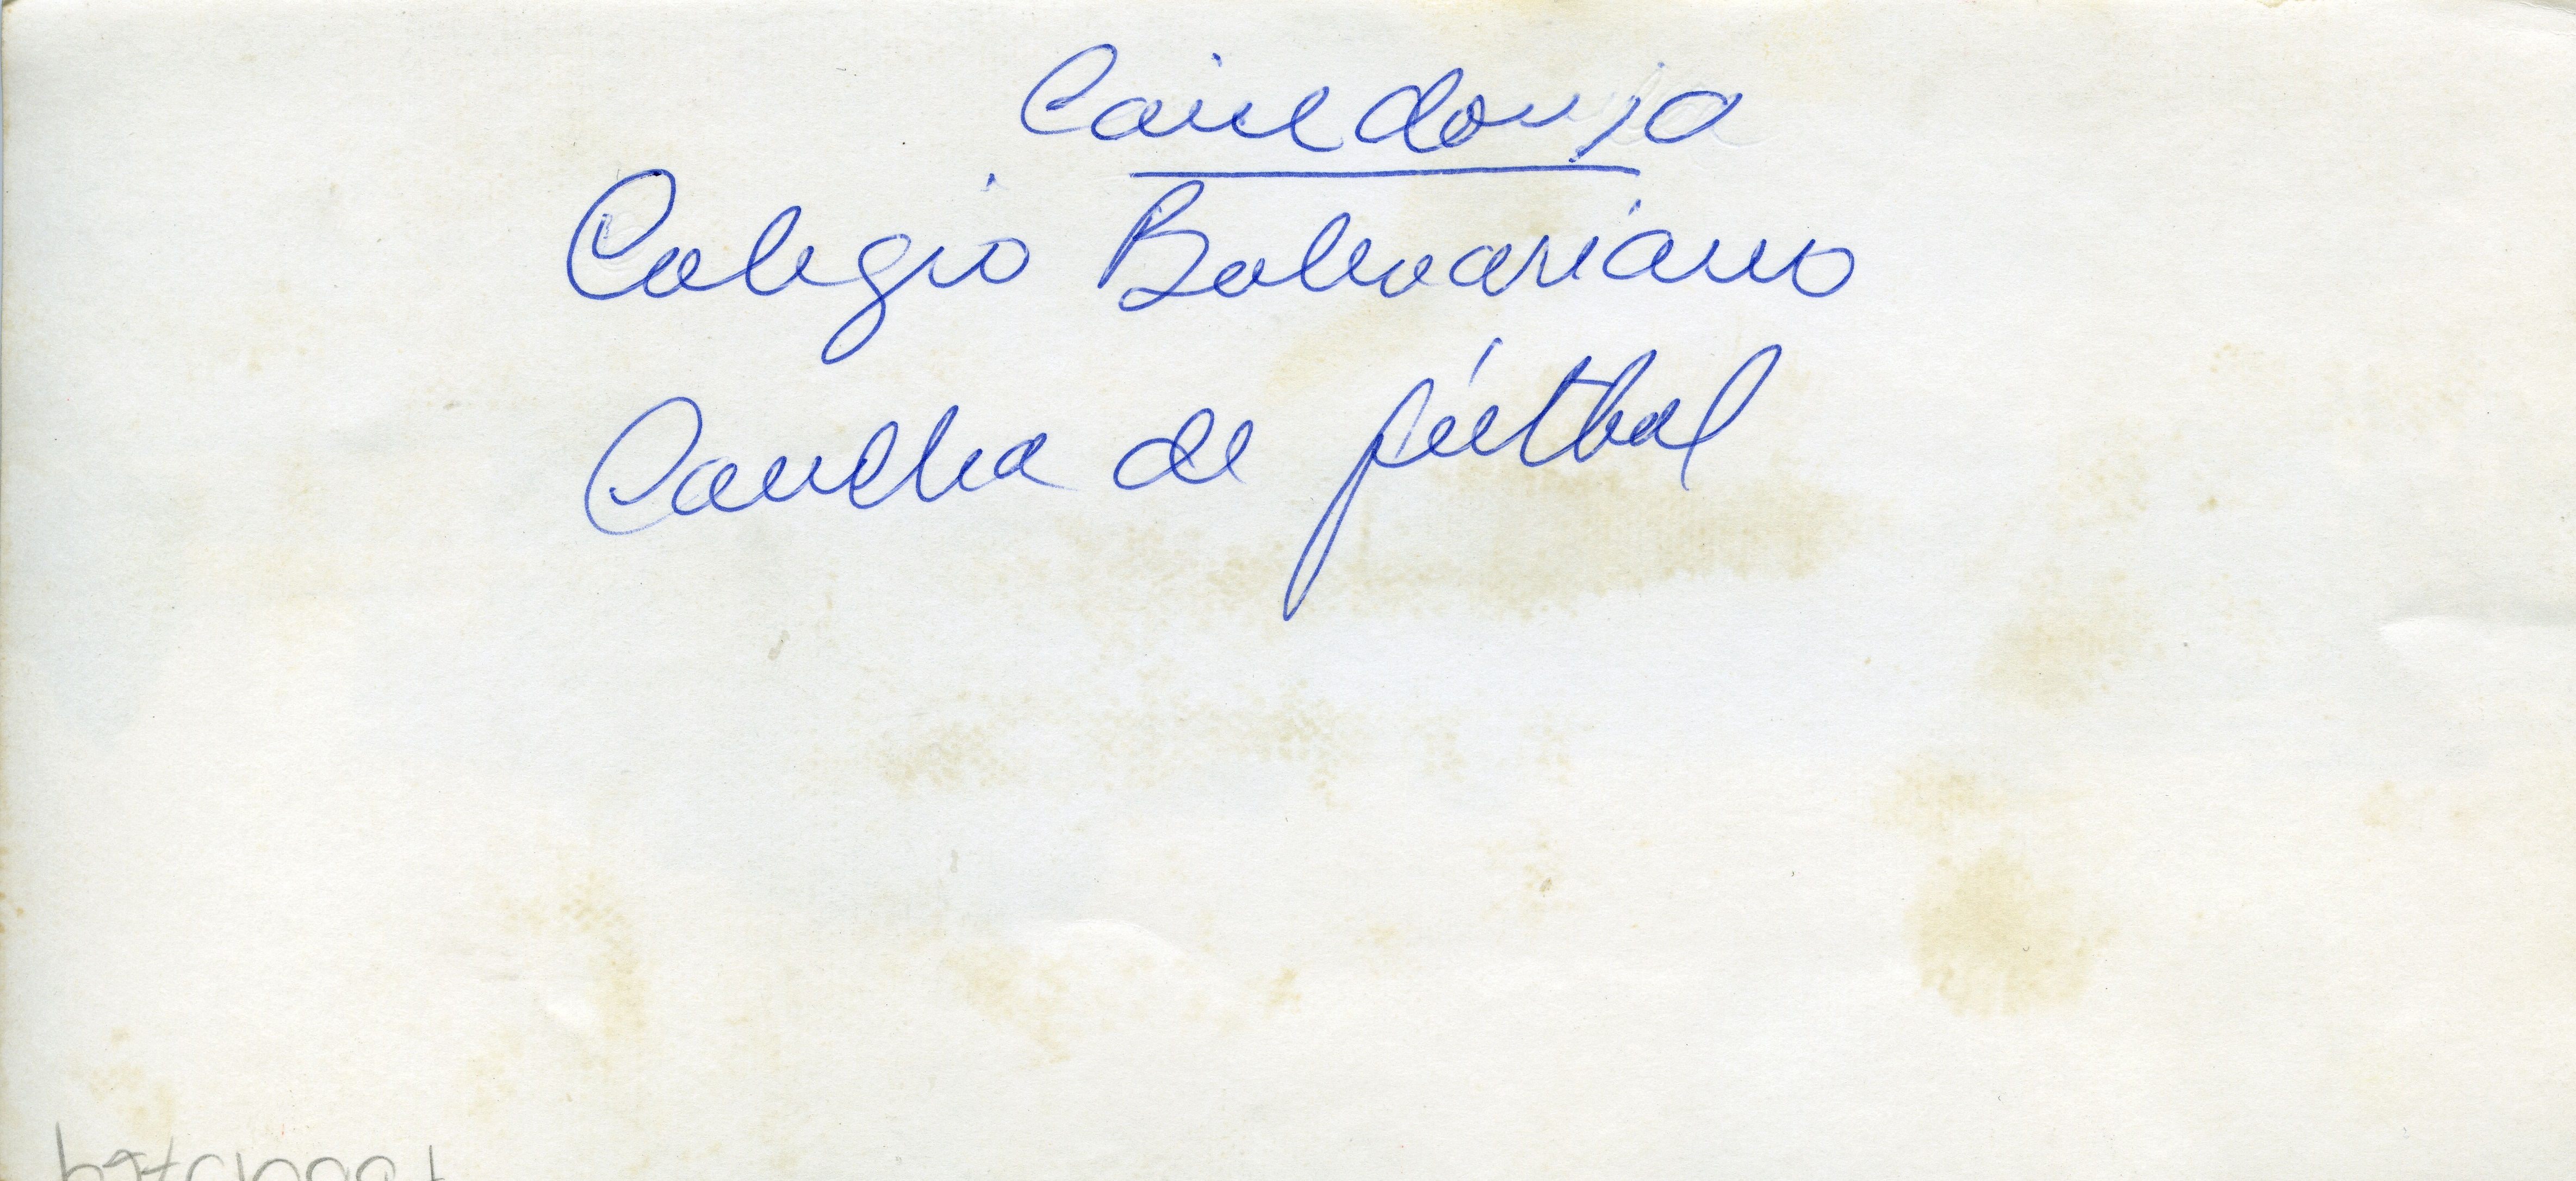 Caicedonia
Colegio Bolivariano
Cancha de fútbol